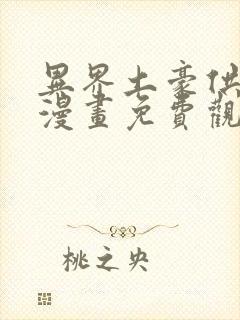 異界土豪供
漫畫免費觀
桃之央